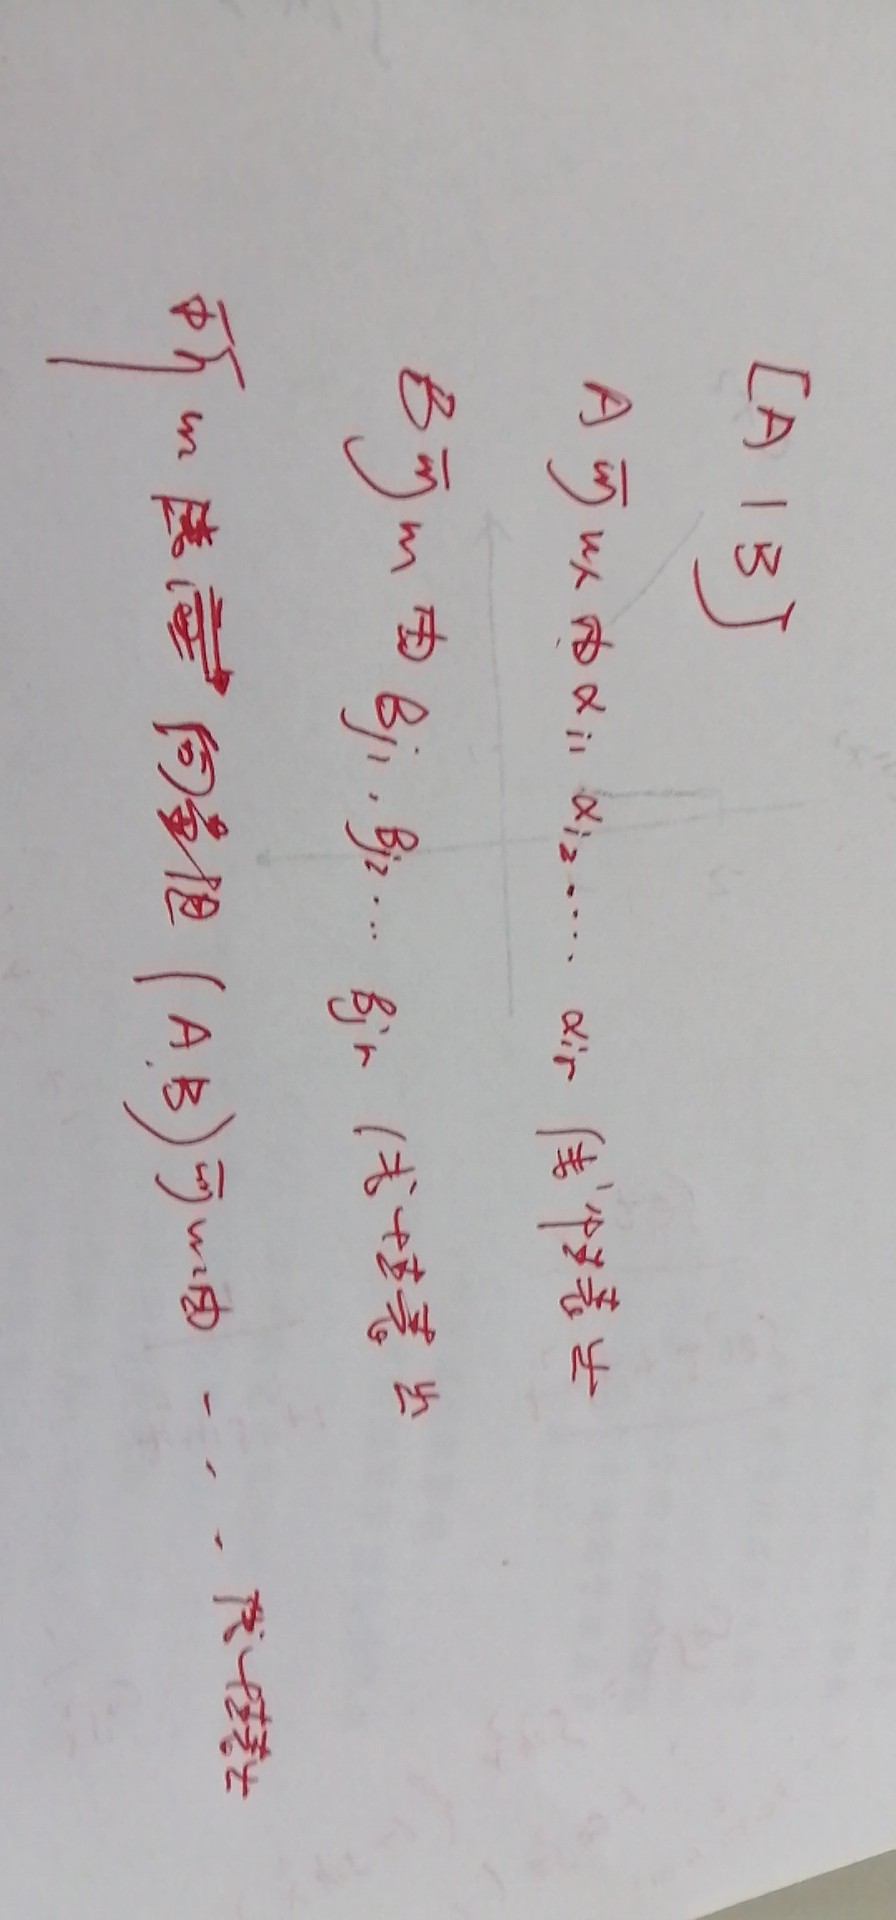 [A | B]
A 可以由 αi1 αi2 .... αir 线性表出
B 可以由 βj1, βj2 ... βjr 线性表出
所以 向量组 (A, B) 可以由 - - - 线性表出